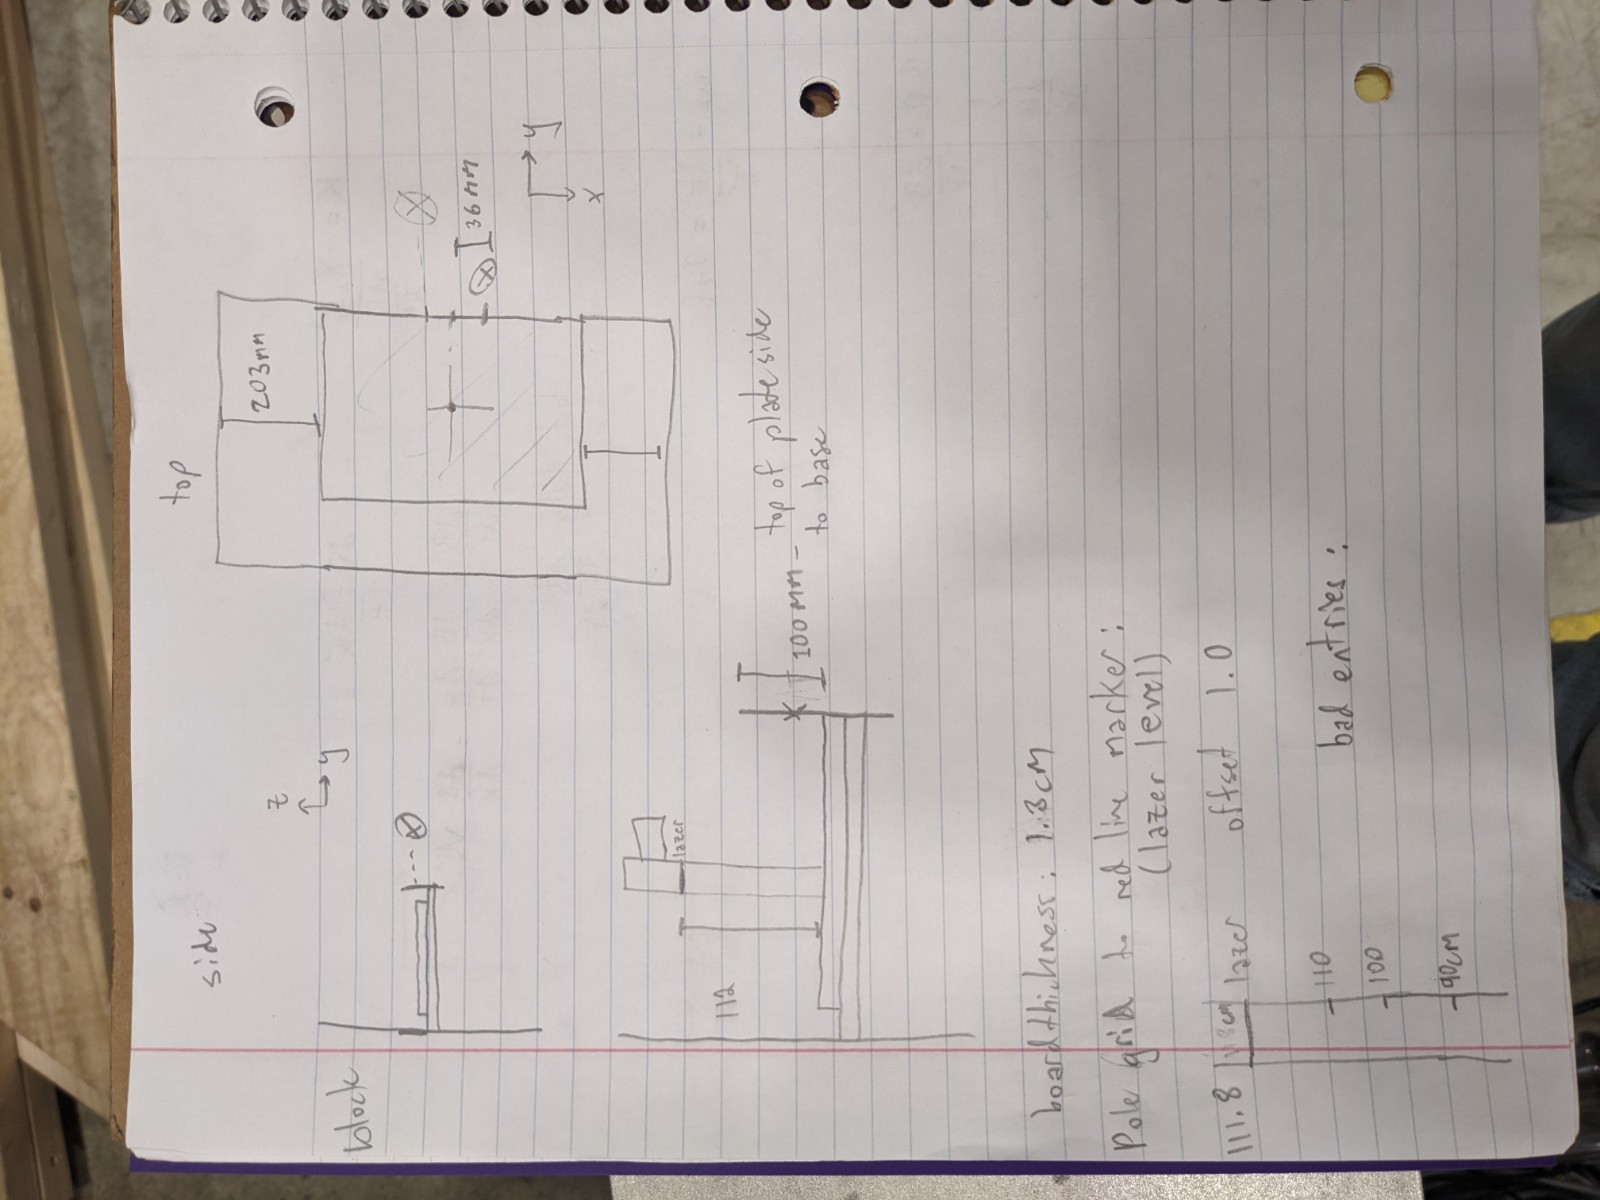 side
top
203mm
z
y
block
36mm
y
x
lazer
112
100mm - top of plate side
to base
board thickness: 1.3cm
Pole grid to red line marker:
(lazer level)
111.8
lazer
offset 1.0
110
bad entries:
100
90cm